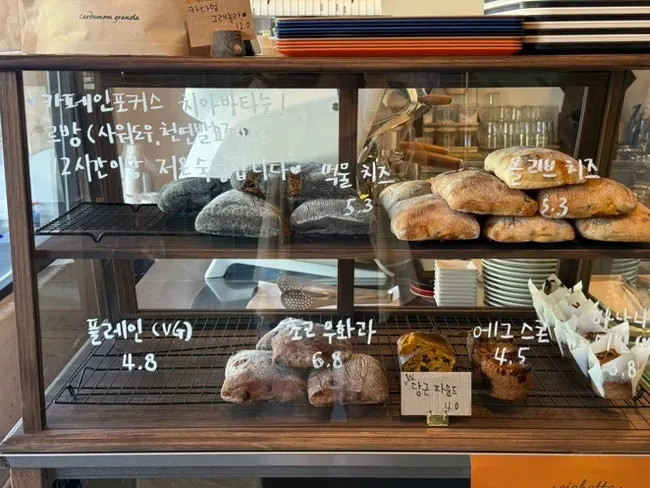 cardamom granola
카다멈
그래놀라
12.0
카페인포커스 치아바타는!
르방(사워도우, 천연발효종)
2시간이상 저온숙 합니다
먹물 치즈
5.3
올리브 치즈
5.3
플레인(VG)
4.8
쇼콜 무화과
6.8
에그 스콘
4.5
바나나
3.8
당근 파운드
4.0